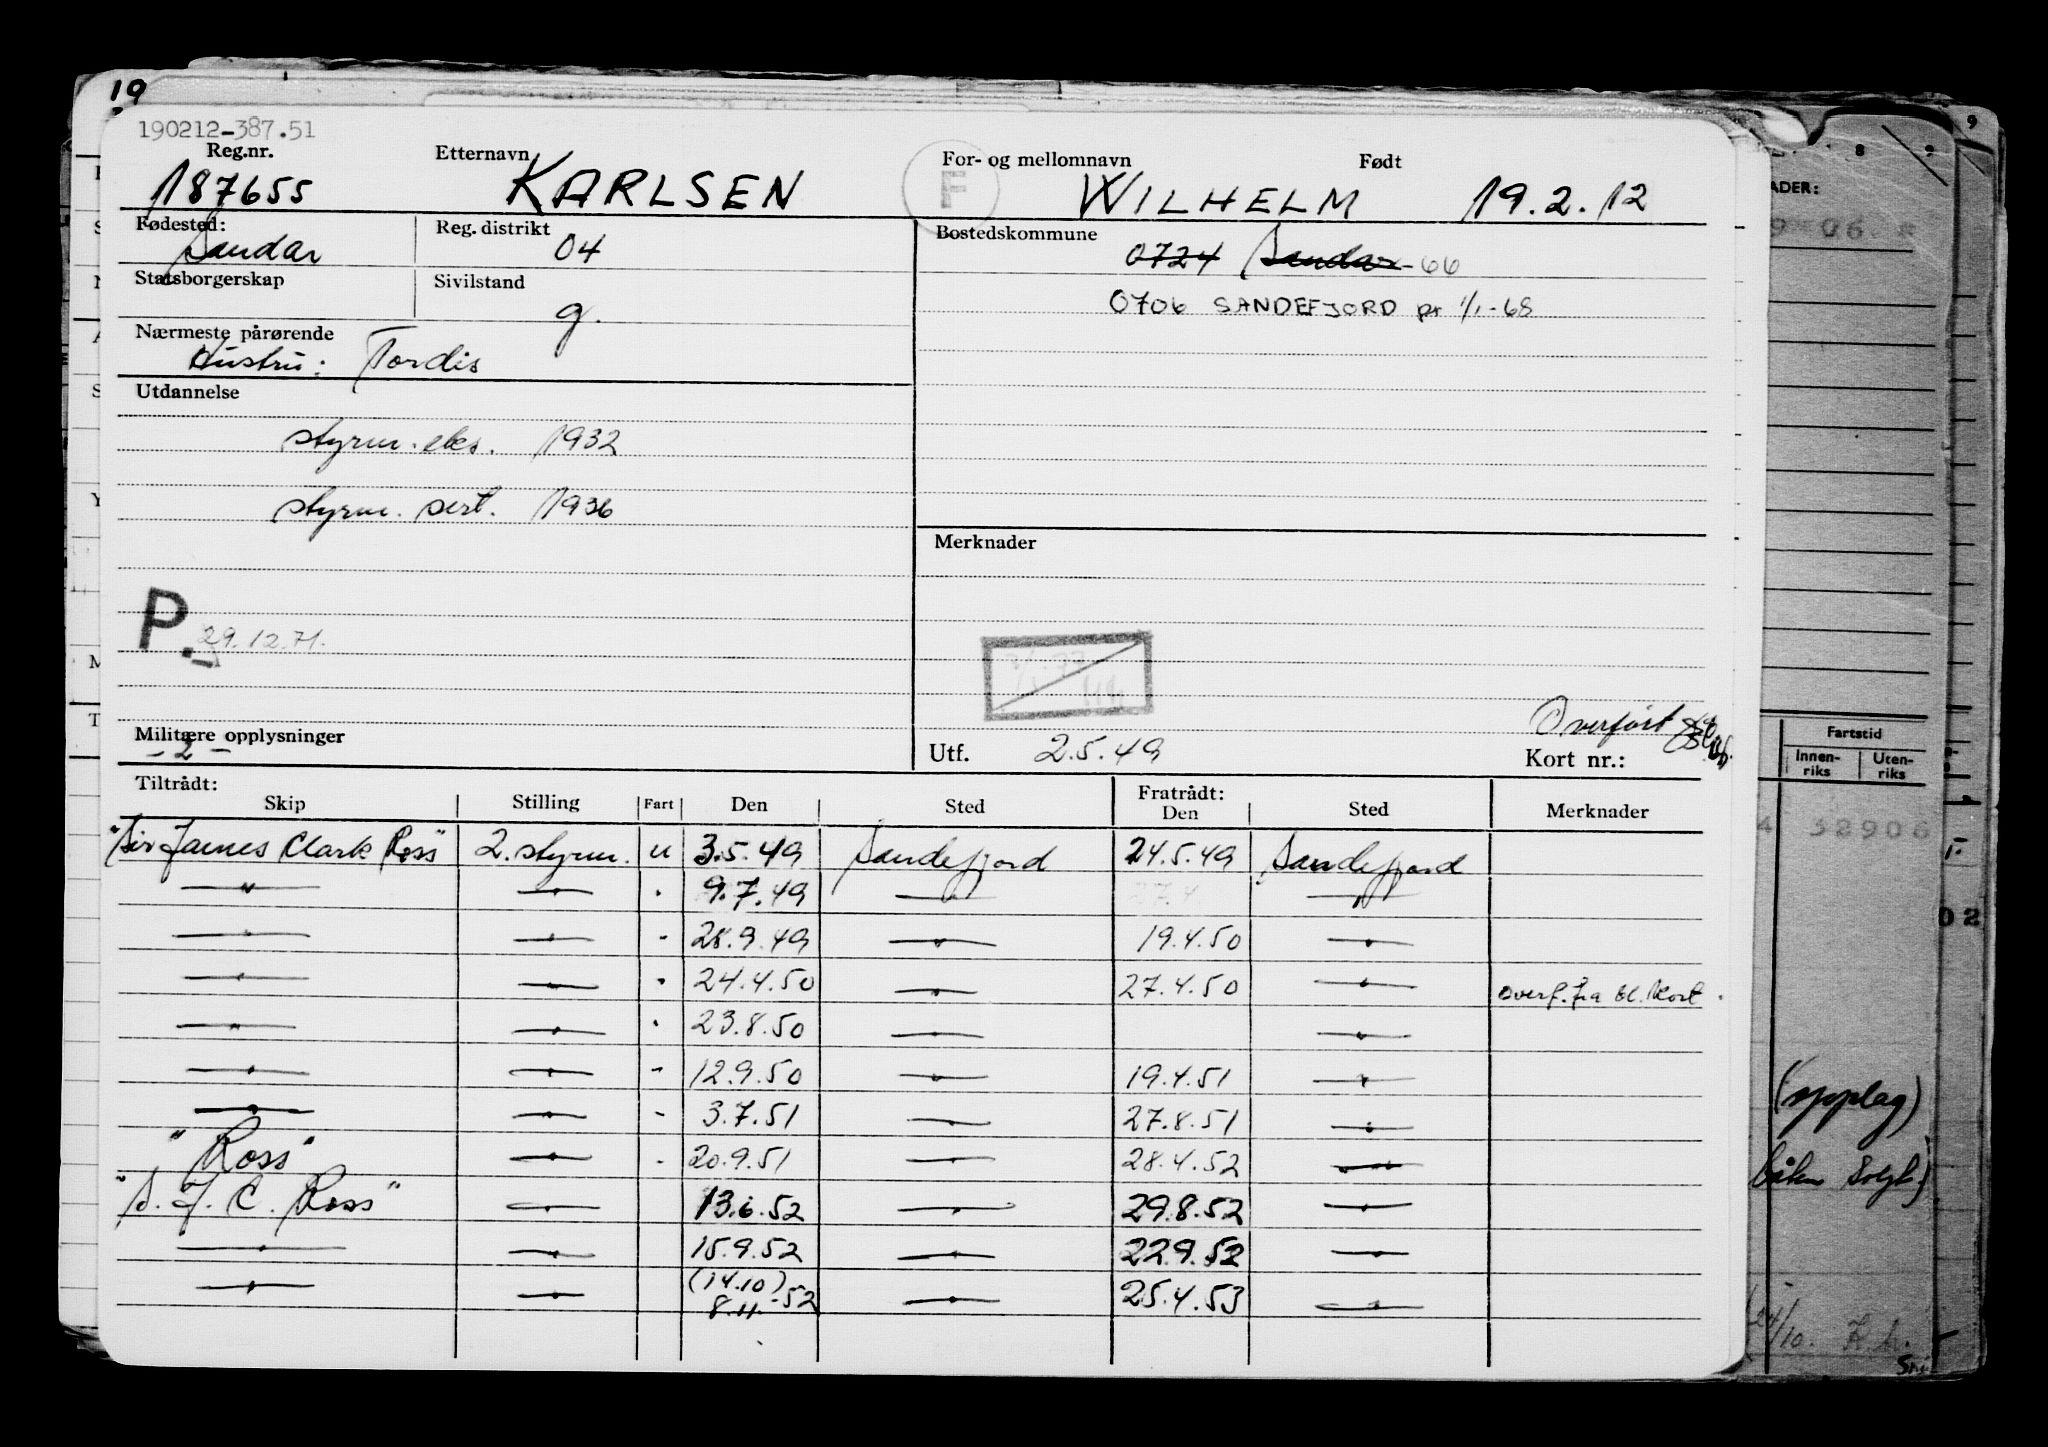 19
190212-387.51
Reg.nr. Etternavn F For- og mellomnavn Født
187655 KARLSEN WILHELM 19.2.12
Fødested: Reg. distrikt Bostedskommune
Sandar 04 0724 Sandar - 66
Statsborgerskap Sivilstand
g. 0706 SANDEFJORD pr 1/1-68
Nærmeste pårørende
Hustru: Tordis
Utdannelse
styrm. eks. 1932
styrm. sert. 1936
Merknader
P. 29.12.71.
Overført
Militære opplysninger
- 2 - Utf. 2.5.49 Kort nr.:
Tiltrådt: Fratrådt:
Skip Stilling Fart Den Sted Den Sted Merknader
"Sir James Clark Ross" 2. styrm. u 3.5.49 Sandefjord 24.5.49 Sandefjord
—"— —"— " 9.7.49 —"— 27.4 —"—
—"— —"— " 28.9.49 —"— 19.4.50 —"—
—"— —"— " 24.4.50 —"— 27.4.50 —"— overf. fra bl. kort.
—"— —"— " 23.8.50 —"— —"—
—"— —"— " 12.9.50 —"— 19.4.51 —"—
—"— —"— " 3.7.51 —"— 27.8.51 —"—
"Ross" —"— " 20.9.51 —"— 28.4.52 —"—
"S. J. C. Ross" —"— 13.6.52 —"— 29.8.52 —"—
—"— —"— 15.9.52 —"— 22.9.52 —"—
—"— —"— (14.10) 8.11.-52 —"— 25.4.53 —"—
8 9
ADER:
9 06
Fartstid
Innen-riks Uten-riks
52906
02
(opplag)
24/10.